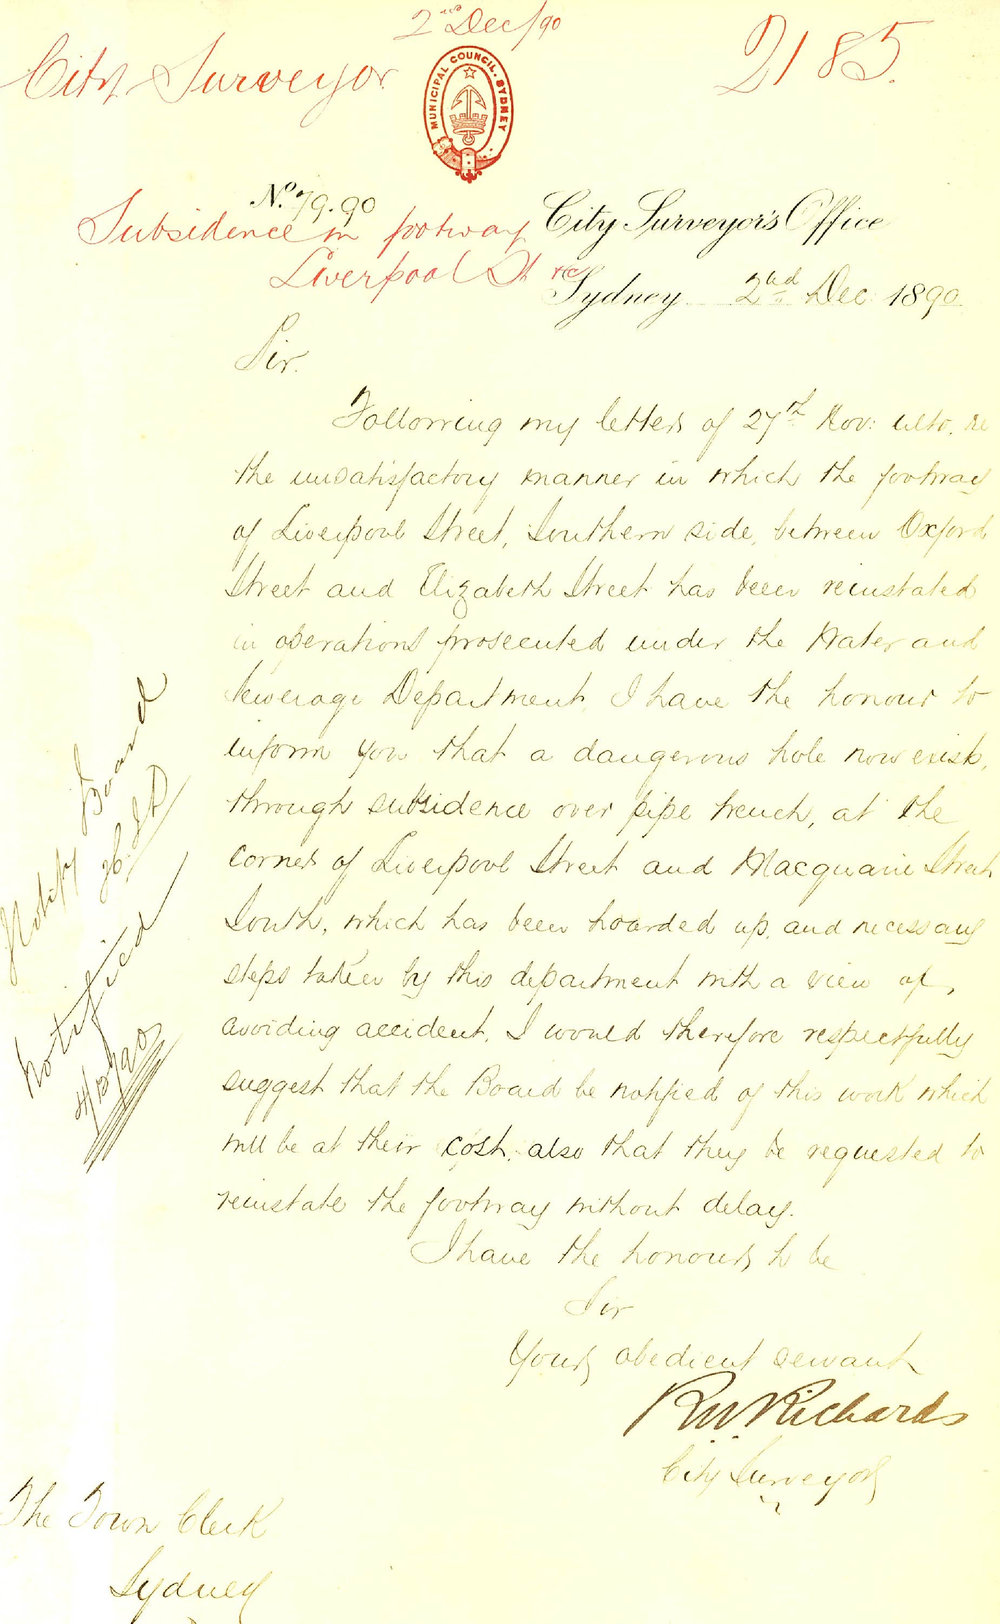 2nd Dec/90
City Surveyor
2185.
MUNICIPAL COUNCIL. SYDNEY
No. 79.90
Subsidence in footway
Liverpool St
City Surveyor's Office
Sydney 2nd Dec 1890
Sir.
Following my letter of 27th Nov: ulto. re
the unsatisfactory manner in which the footway
of Liverpool Street, Southern side, between Oxford
Street and Elizabeth Street has been reinstated
in operations prosecuted under the Water and
Sewerage Department, I have the honour to
inform you that a dangerous hole now exists,
through subsidence over pipe trench, at the
corner of Liverpool Street and Macquarie Street
South, which has been hoarded up, and necessary
steps taken by this department with a view of,
avoiding accident. I would therefore respectfully
suggest that the Board be notified of this work which
will be at their cost, also that they be requested to
reinstate the footway without delay.
I have the honour to be
Sir
Your obedient servant
R.W. Richards
City Surveyor
The Town Clerk
Sydney
Notify Board
notified
4/12/90